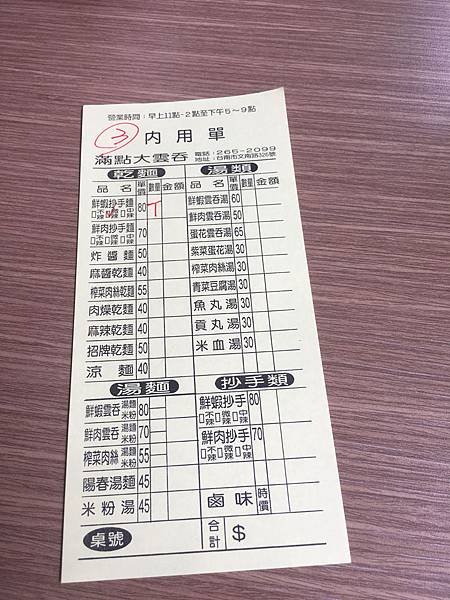 營業時間：早上11點-2點至下午5～9點
3 內用單
滿點大雲吞 電話：265-2099
地址：台南市文南路326號
乾麵 湯類
品名 單價 數量 金額 品名 單價 數量 金額
鮮蝦抄手麵 80 鮮蝦雲吞湯 60
□不辣 □微辣 □中辣
鮮肉抄手麵 70 鮮肉雲吞湯 50
□不辣 □微辣 □中辣
炸醬麵 50 蛋花雲吞湯 65
麻醬乾麵 40 紫菜蛋花湯 30
榨菜肉絲乾麵 55 榨菜肉絲湯 30
肉燥乾麵 40 青菜豆腐湯 30
麻辣乾麵 40 魚丸湯 30
招牌乾麵 50 貢丸湯 30
涼麵 40 米血湯 30
湯麵 抄手類
鮮蝦雲吞 湯麵 米粉 80 鮮蝦抄手 80
□不辣 □微辣 □中辣
鮮肉雲吞 湯麵 米粉 70 鮮肉抄手 70
□不辣 □微辣 □中辣
榨菜肉絲 湯麵 米粉 55
陽春湯麵 45
米粉湯 45 鹵味 時價
桌號 合計 $